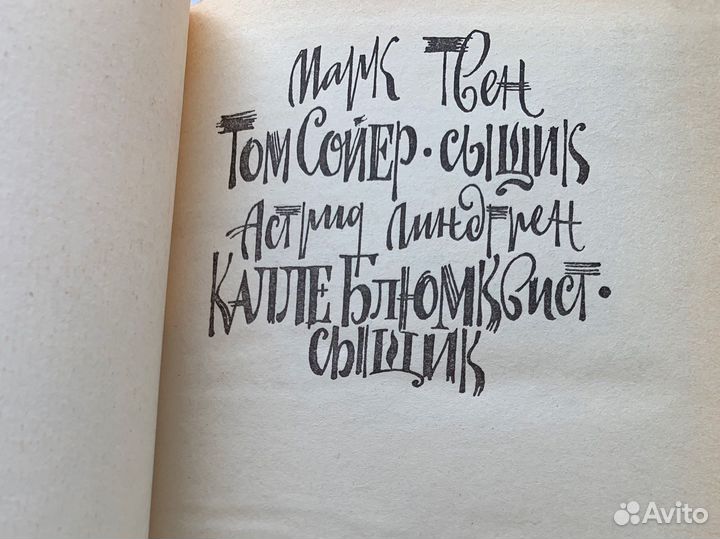 Марк Твен
Том Сойер • сыщик
Астрид Линдгрен
Калле Блюмквист •
сыщик
Avito